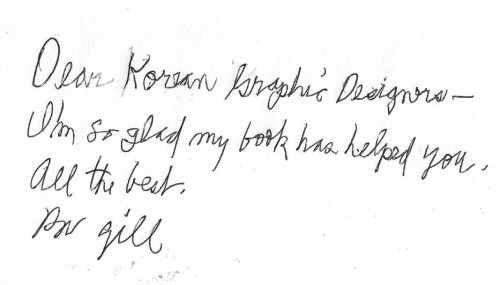 Dear Korean Graphic Designers—
I'm so glad my book has helped you.
All the best.
Bob gill